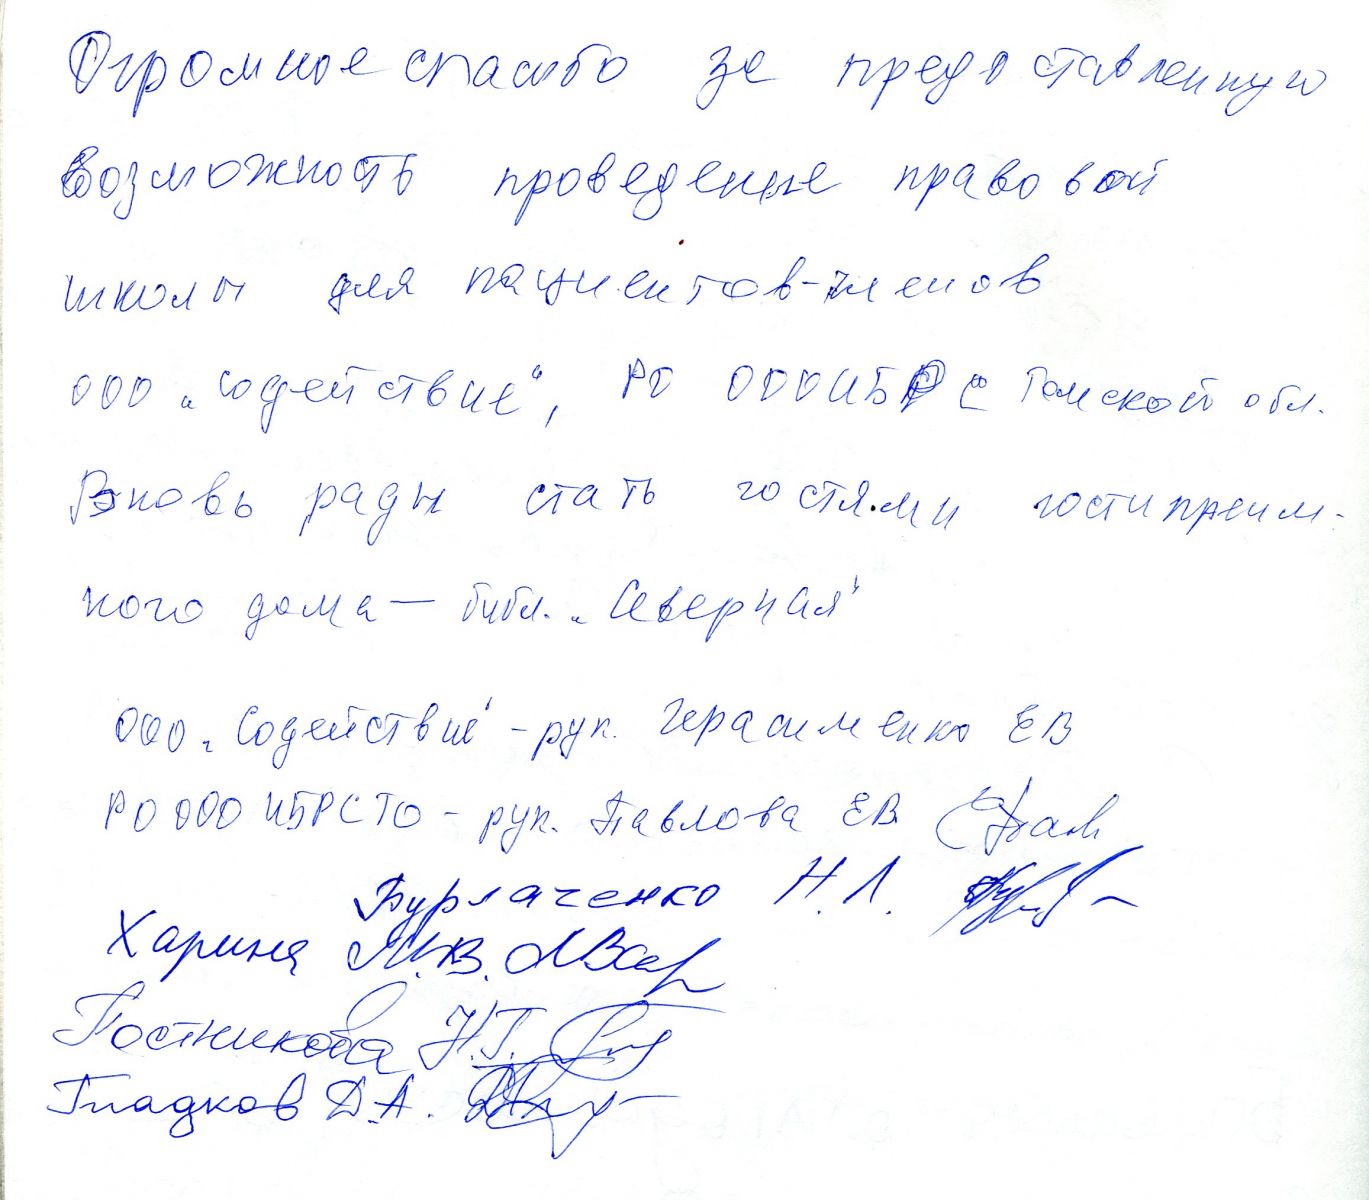 Огромное спасибо за предоставленную
возможность проведение правовой
школы для пациентов-членов
ООО „Содействие“, РО ОООИБРС Томской обл.
Вновь рады стать гостями гостиприим-
ного дома — библ. „Северная“
ООО „Содействие“ - рук. Герасименко ЕВ
РО ОООИБРСТО - рук. Павлова ЕВ
Бурлаченко Н.Л.
Харина М.В.
Постникова Н.Г.
Гладков Д.А.